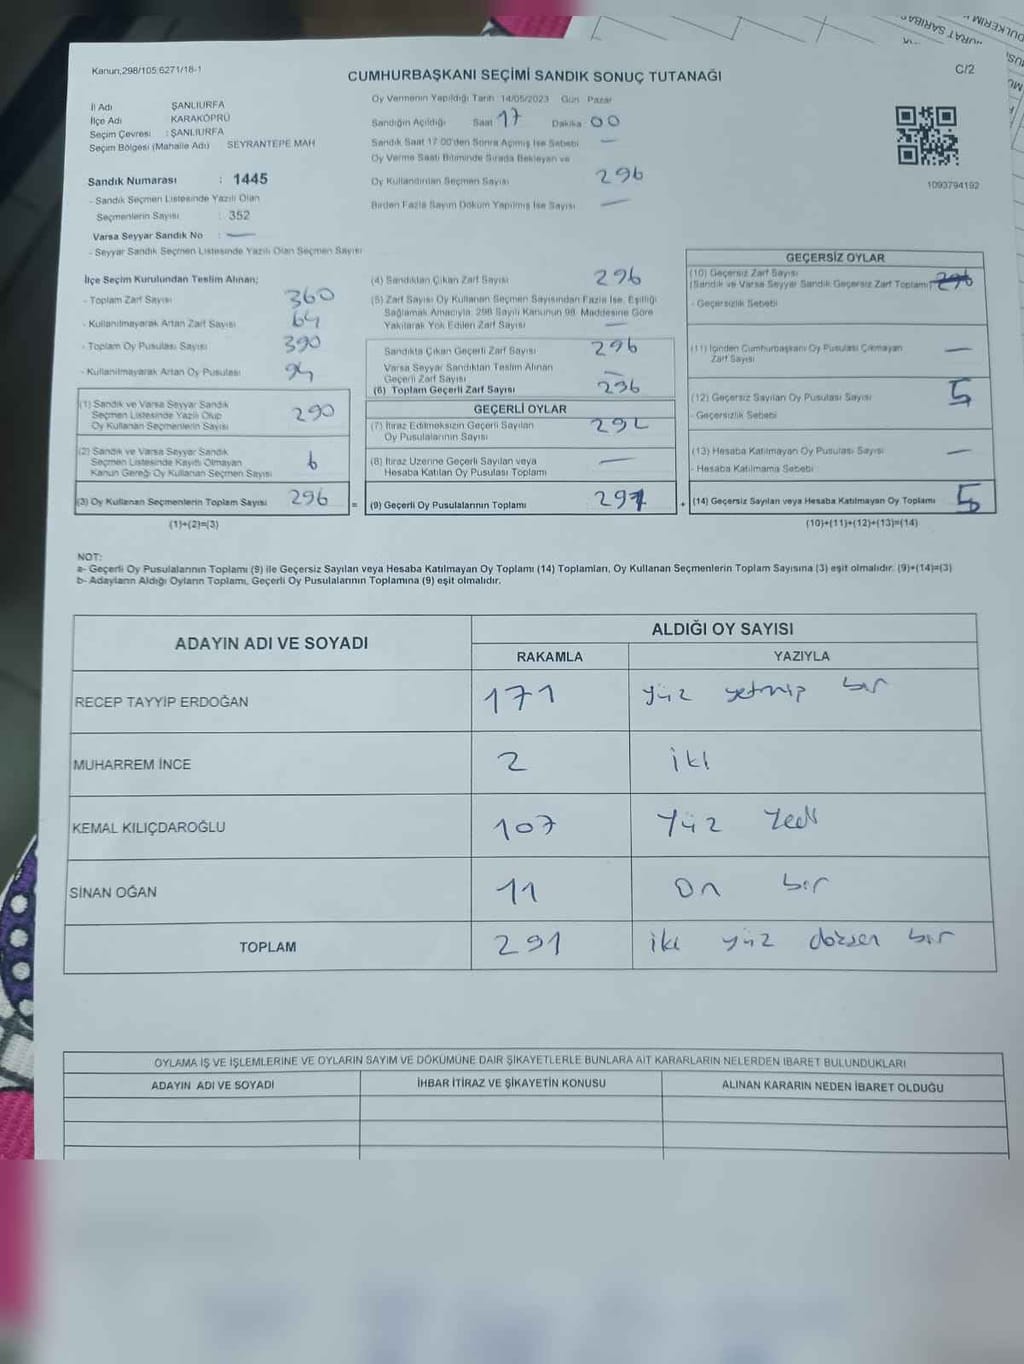 Kanun;298/105;6271/18-1
C/2
CUMHURBAŞKANI SEÇİMİ SANDIK SONUÇ TUTANAĞI
İl Adı ŞANLIURFA
İlçe Adı KARAKÖPRÜ
Seçim Çevresi : ŞANLIURFA
Seçim Bölgesi (Mahalle Adı) SEYRANTEPE MAH
Sandık Numarası : 1445
- Sandık Seçmen Listesinde Yazılı Olan
Seçmenlerin Sayısı : 352
Varsa Seyyar Sandık No : —
- Seyyar Sandık Seçmen Listesinde Yazılı Olan Seçmen Sayısı
Oy Vermenin Yapıldığı Tarih 14/05/2023 Gün Pazar
Sandığın Açıldığı Saat 17 Dakika 00
Sandık Saat 17:00'den Sonra Açılmış İse Sebebi —
Oy Verme Saati Bitiminde Sırada Bekleyen ve
Oy Kullandırılan Seçmen Sayısı 296
Birden Fazla Sayım Döküm Yapılmış İse Sayısı —
1093794192
İlçe Seçim Kurulundan Teslim Alınan;
- Toplam Zarf Sayısı 360
- Kullanılmayarak Artan Zarf Sayısı 64
- Toplam Oy Pusulası Sayısı 390
- Kullanılmayarak Artan Oy Pusulası 94
(1) Sandık ve Varsa Seyyar Sandık
Seçmen Listesinde Yazılı Olup
Oy Kullanan Seçmenlerin Sayısı 290
(2) Sandık ve Varsa Seyyar Sandık
Seçmen Listesinde Kayıtlı Olmayan
Kanun Gereği Oy Kullanan Seçmen Sayısı 6
(3) Oy Kullanan Seçmenlerin Toplam Sayısı 296
(1)+(2)=(3)
(4) Sandıktan Çıkan Zarf Sayısı 296
(5) Zarf Sayısı Oy Kullanan Seçmen Sayısından Fazla İse, Eşitliği
Sağlamak Amacıyla, 298 Sayılı Kanunun 98. Maddesine Göre
Yakılarak Yok Edilen Zarf Sayısı —
Sandıkta Çıkan Geçerli Zarf Sayısı 296
Varsa Seyyar Sandıktan Teslim Alınan
Geçerli Zarf Sayısı —
(6) Toplam Geçerli Zarf Sayısı 296
GEÇERLİ OYLAR
(7) İtiraz Edilmeksizin Geçerli Sayılan
Oy Pusulalarının Sayısı
(8) İtiraz Üzerine Geçerli Sayılan veya
Hesaba Katılan Oy Pusulası Toplamı —
= (9) Geçerli Oy Pusulalarının Toplamı 291
GEÇERSİZ OYLAR
(10) Geçersiz Zarf Sayısı
(Sandık ve Varsa Seyyar Sandık Geçersiz Zarf Toplamı) 296
- Geçersizlik Sebebi
(11) İçinden Cumhurbaşkanı Oy Pusulası Çıkmayan
Zarf Sayısı —
(12) Geçersiz Sayılan Oy Pusulası Sayısı 5
- Geçersizlik Sebebi
(13) Hesaba Katılmayan Oy Pusulası Sayısı —
- Hesaba Katılmama Sebebi
+ (14) Geçersiz Sayılan veya Hesaba Katılmayan Oy Toplamı 5
(10)+(11)+(12)+(13)=(14)
NOT:
a- Geçerli Oy Pusulalarının Toplamı (9) ile Geçersiz Sayılan veya Hesaba Katılmayan Oy Toplamı (14) Toplamları, Oy Kullanan Seçmenlerin Toplam Sayısına (3) eşit olmalıdır. (9)+(14)=(3)
b- Adayların Aldığı Oyların Toplamı, Geçerli Oy Pusulalarının Toplamına (9) eşit olmalıdır.
ADAYIN ADI VE SOYADI
ALDIĞI OY SAYISI
RAKAMLA YAZIYLA
RECEP TAYYİP ERDOĞAN 171 yüz yetmiş bir
MUHARREM İNCE 2 iki
KEMAL KILIÇDAROĞLU 107 Yüz Yedi
SİNAN OĞAN 11 On bir
TOPLAM 291 iki yüz doksan bir
OYLAMA İŞ VE İŞLEMLERİNE VE OYLARIN SAYIM VE DÖKÜMÜNE DAİR ŞİKAYETLERLE BUNLARA AİT KARARLARIN NELERDEN İBARET BULUNDUKLARI
ADAYIN ADI VE SOYADI İHBAR İTİRAZ VE ŞİKAYETİN KONUSU ALINAN KARARIN NEDEN İBARET OLDUĞU